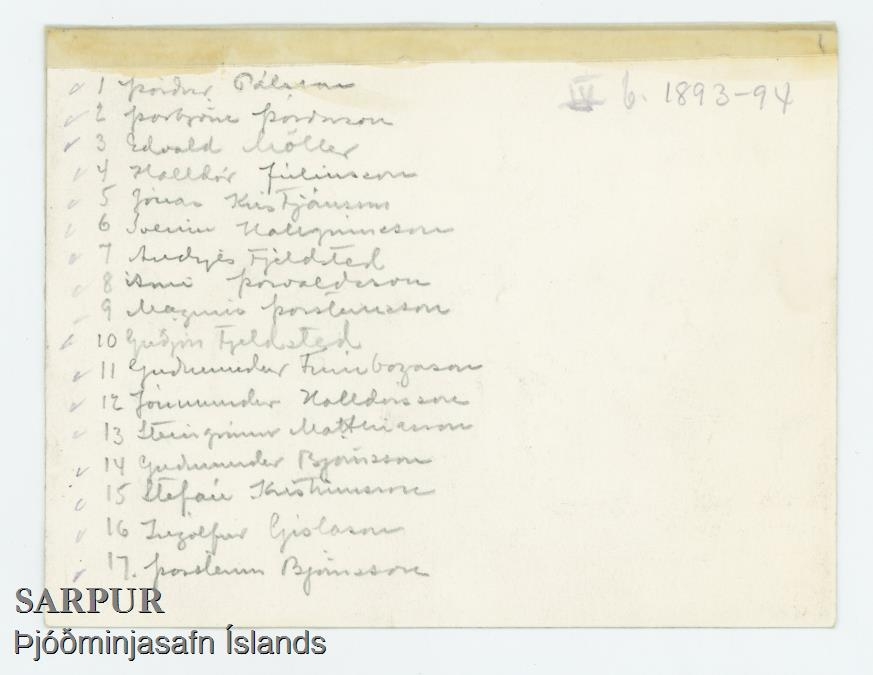 IV b. 1893-94
1 Þórður Pálsson
2 Þorbjörn Þórðarson
3 Edvald Möller
4 Halldór Júlíusson
5 Jónas Kristjánsson
6 Sveinn Hallgrímsson
7 Andrjes Fjeldsted
8 Árni Þorvaldsson
9 Magnús Þorsteinsson
10 Guðjón Fjeldsted
11 Guðmundur Finnbogason
12 Jónmundur Halldórsson
13 Steingrímur Matthíasson
14 Guðmundur Björnsson
15 Stefán Kristinsson
16 Ingólfur Gíslason
17. Þorsteinn Björnsson
SARPUR
Þjóðminjasafn Íslands